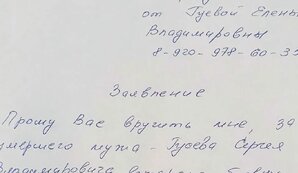 от Гуевой Елены
Владимировны
8-920-978-60-35
Заявление
Прошу Вас вручить мне, за
умершего мужа - Гуева Сергея
Владимировича